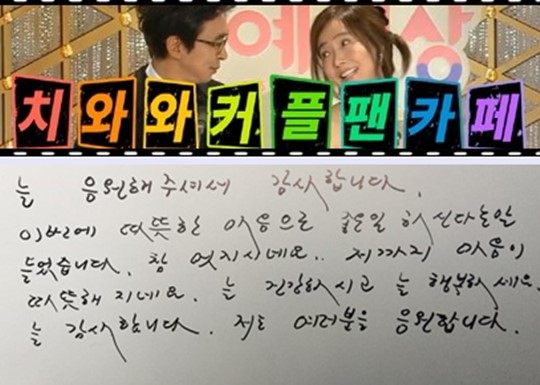 예 상
치와와커플팬카페
늘 응원해주셔서 감사합니다.
이번에 따뜻한 마음으로 좋은일 하신다는말
들었습니다. 참 멋지시네요.. 저까지 마음이
따뜻해 지네요. 늘 건강하시고 늘 행복하세요.
늘 감사합니다. 저도 여러분을 응원합니다.